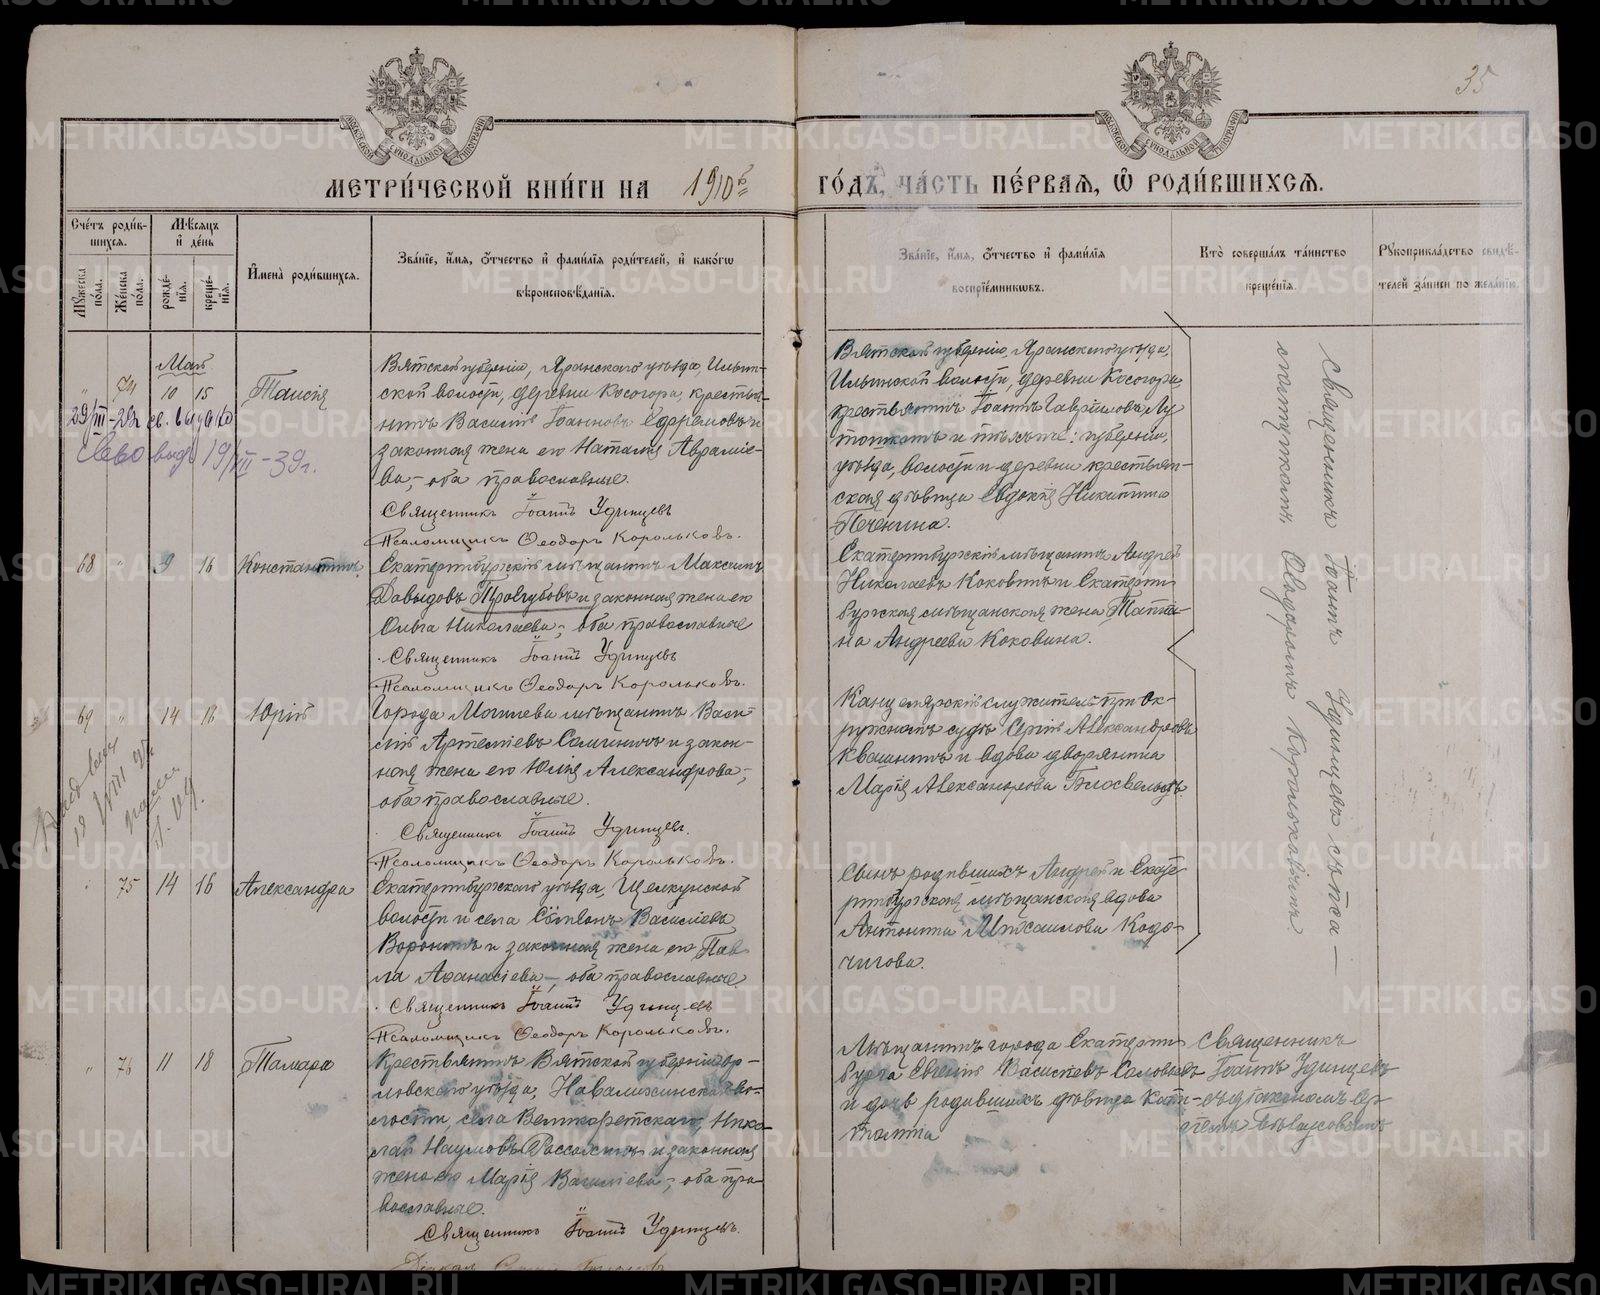 35
МЕТРИ́ЧЕСКОЙ КНИ́ГИ НА 1910 ГО́ДЪ, ЧА́СТЬ ПЕ́РВАЯ, Ѡ҆ РОДИ́ВШИХСЯ.
Сче́тъ роди́в-
шихся.
Мꙋ́жеска по́ла.
Же́нска по́ла.
Мѣ́сяцъ
и҆ де́нь
рожде́нїя.
креще́нїя.
И҆мена̀ роди́вшихся.
Зва́нїе, и҆́мя, ѻ҆́тчество и҆ фами́лїя роди́телей, и҆ како́гѡ
вѣроисповѣ́данїя.
Зва́нїе, и҆́мя, ѻ҆́тчество и҆ фами́лїя
воспрїе́мникѡвъ.
Кто̀ соверша́лъ та́инство
креще́нїя.
Рꙋкоприкла́дство свидѣ́-
телей за́писи по жела́нїю.
Май
" 74 10 15 Таисія
Вятской губерніи, Яранскаго уѣзда, Ильин-
ской волости, деревни Косогора, крестья-
нинъ Василій Іоанновъ Ефремовъ и
законная жена его Наталія Авраміе-
ва, - оба православные.
Священникъ Іоаннъ Удинцевъ
Псаломщикъ Ѳеодоръ Корольковъ.
Вятской губерніи, Яранскаго уѣзда,
Ильинской волости, деревни Косогора,
крестьянинъ Іоаннъ Гавриловъ
и тѣхъ же: губерніи,
уѣзда, волости и деревни крестьян-
ская дѣвица Евдокія Никитина
Печенина.
68 " 9 16 Константинъ
Екатеринбургскій мѣщанинъ Максимъ
Давыдовъ и законная жена его
Ольга Николаева; оба православные
Священникъ Іоаннъ Удинцевъ
Псаломщикъ Ѳеодоръ Корольковъ.
Екатеринбургскій мѣщанинъ Андрей
Николаевъ Коковинъ и Екатерин
бургская мѣщанская жена Татіа-
на Андреева Коковина.
69 " 14 16 Юрій
Города Могилева мѣщанинъ Васи-
лій Артеміевъ и закон-
ная жена его Юлія Александрова;
оба православные.
Священникъ Іоаннъ Удинцевъ.
Псаломщикъ Ѳеодоръ Корольковъ.
Канцелярскій служитель при Ок-
ружномъ судѣ Сергій Александровъ
Квашнинъ и вдова дворянина
Марія Александрова
" 75 14 16 Александра
Екатеринбургскаго уѣзда, Щелкунской
волости и села Сѵмеонъ Василіевъ
Воронинъ и законная жена его Пав
ла Аѳанасіева, оба православные
Священникъ Іоаннъ Удинцевъ
Псаломщикъ Ѳеодоръ Корольковъ.
Сынъ родившихъ Андрей и Екате-
ринбургская мѣщанская вдова
Антонина Михаилова Кадо-
чигова.
Священникъ Іоаннъ Удинцевъ съ пса-
ломщикомъ Ѳеодоромъ Корольковымъ.
" 76 11 18 Тамара
Крестьянинъ Вятской губерніи Ор-
ловскаго уѣзда, во-
лости, села Великорѣтскаго, Нико-
лай Наумовъ и законная
жена его Марія Василіева; оба пра-
вославные.
Священникъ Іоаннъ Удинцевъ.
Мѣщанинъ города Екатерин
бурга Евгеній Василіевъ Соловьевъ
и дочь родившихъ дѣвица Капи-
толина
Священникъ
Іоаннъ Удинцевъ
съ діакономъ Сер-
гіемъ
METRIKI.GASO-URAL.RU